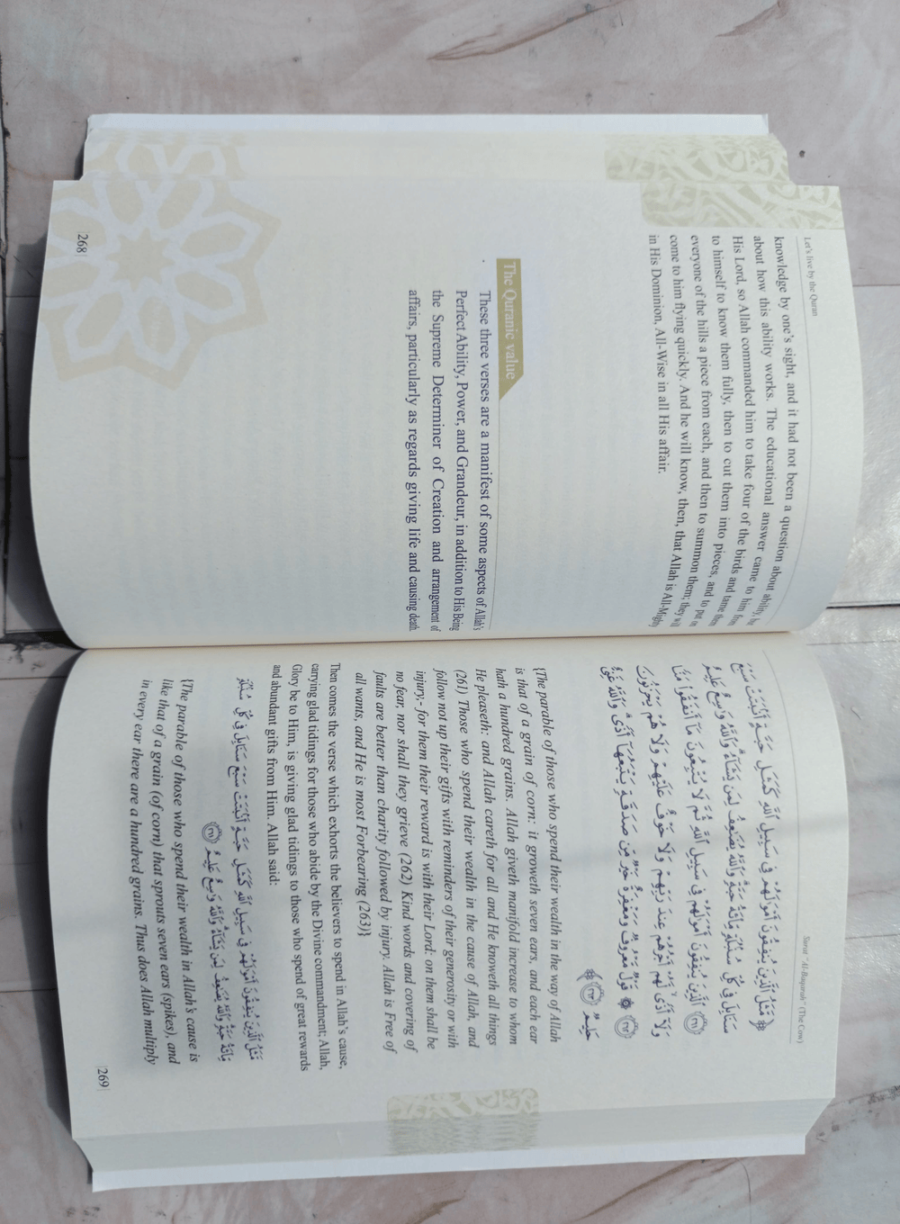 Let's live by the Quran
knowledge by one's sight, and it had not been a question about ability, but
about how this ability works. The educational answer came to him from
His Lord, so Allah commanded him to take four of the birds and tame them
to himself to know them fully, then to cut them into pieces, and to put on
everyone of the hills a piece from each, and then to summon them; they will
come to him flying quickly. And he will know, then, that Allah is All-Mighty
in His Dominion, All-Wise in all His affair.
The Quranic value
These three verses are a manifest of some aspects of Allah's
Perfect Ability, Power, and Grandeur, in addition to His Being
the Supreme Determiner of Creation and arrangement of
affairs, particularly as regards giving life and causing death.
268
Surat "Al-Baqarah" (The Cow)
﴿ مَّثَلُ ٱلَّذِينَ يُنفِقُونَ أَمْوَٰلَهُمْ فِى سَبِيلِ ٱللَّهِ كَمَثَلِ حَبَّةٍ أَنۢبَتَتْ سَبْعَ
سَنَابِلَ فِى كُلِّ سُنۢبُلَةٍ مِّا۟ئَةُ حَبَّةٍ وَٱللَّهُ يُضَٰعِفُ لِمَن يَشَآءُ وَٱللَّهُ وَٰسِعٌ عَلِيمٌ
﴿٢٦١﴾ ٱلَّذِينَ يُنفِقُونَ أَمْوَٰلَهُمْ فِى سَبِيلِ ٱللَّهِ ثُمَّ لَا يُتْبِعُونَ مَآ أَنفَقُوا۟ مَنًّا
وَلَآ أَذًى لَّهُمْ أَجْرُهُمْ عِندَ رَبِّهِمْ وَلَا خَوْفٌ عَلَيْهِمْ وَلَا هُمْ يَحْزَنُونَ
﴿٢٦٢﴾ قَوْلٌ مَّعْرُوفٌ وَمَغْفِرَةٌ خَيْرٌ مِّن صَدَقَةٍ يَتْبَعُهَآ أَذًى وَٱللَّهُ غَنِىٌّ
حَلِيمٌ ﴿٢٦٣﴾
{The parable of those who spend their wealth in the way of Allah
is that of a grain of corn: it groweth seven ears, and each ear
hath a hundred grains. Allah giveth manifold increase to whom
He pleaseth: and Allah careth for all and He knoweth all things
(261) Those who spend their wealth in the cause of Allah, and
follow not up their gifts with reminders of their generosity or with
injury,- for them their reward is with their Lord: on them shall be
no fear, nor shall they grieve (262) Kind words and covering of
faults are better than charity followed by injury. Allah is Free of
all wants, and He is most Forbearing (263)}
Then comes the verse which exhorts the believers to spend in Allah's cause,
carrying glad tidings for those who abide by the Divine commandment; Allah,
Glory be to Him, is giving glad tidings to those who spend of great rewards
and abundant gifts from Him. Allah said:
مَّثَلُ ٱلَّذِينَ يُنفِقُونَ أَمْوَٰلَهُمْ فِى سَبِيلِ ٱللَّهِ كَمَثَلِ حَبَّةٍ أَنۢبَتَتْ سَبْعَ سَنَابِلَ فِى كُلِّ سُنۢبُلَةٍ
مِّا۟ئَةُ حَبَّةٍ وَٱللَّهُ يُضَٰعِفُ لِمَن يَشَآءُ وَٱللَّهُ وَٰسِعٌ عَلِيمٌ ﴿٢٦١﴾
{The parable of those who spend their wealth in Allah's cause is
like that of a grain (of corn) that sprouts seven ears (spikes), and
in every ear there are a hundred grains. Thus does Allah multiply
269